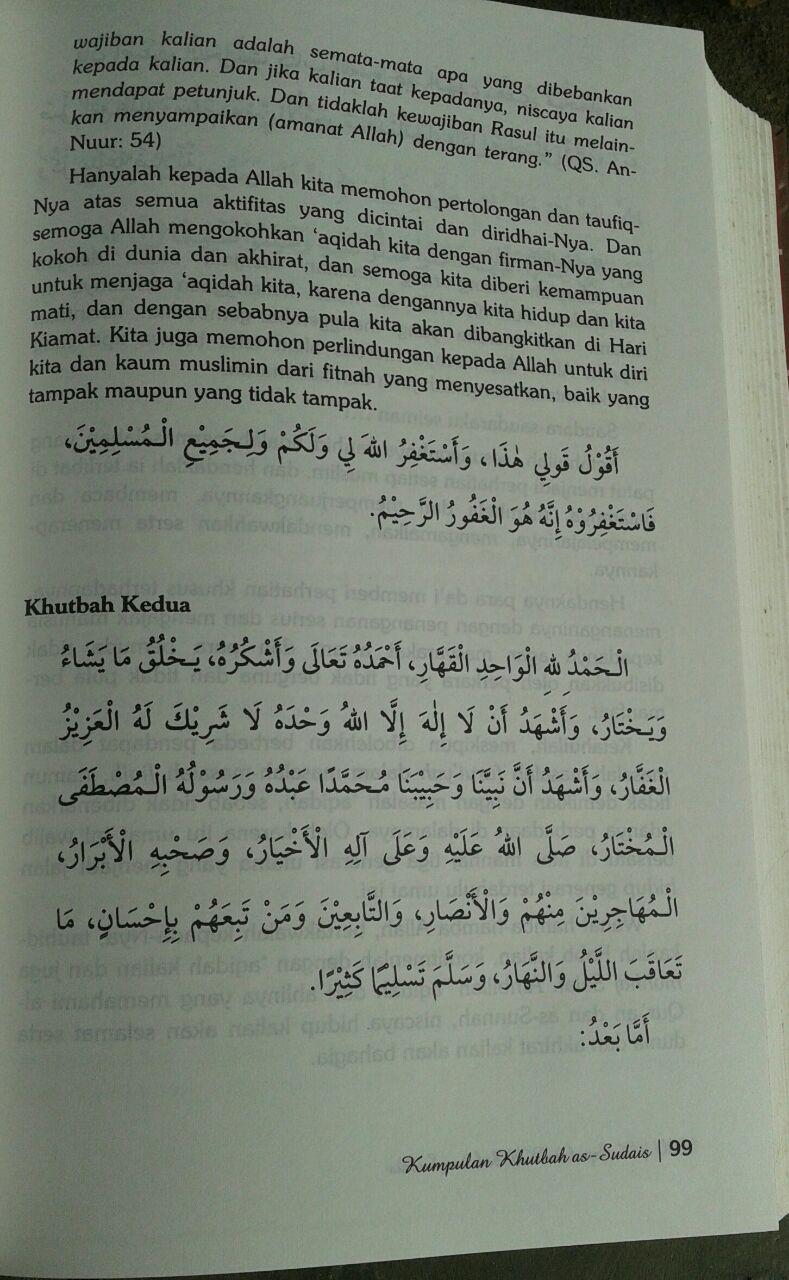 wajiban kalian adalah semata-mata apa yang dibebankan
kepada kalian. Dan jika kalian taat kepadanya, niscaya kalian
mendapat petunjuk. Dan tidaklah kewajiban Rasul itu melain-
kan menyampaikan (amanat Allah) dengan terang.” (QS. An-
Nuur: 54)
Hanyalah kepada Allah kita memohon pertolongan dan taufiq-
Nya atas semua aktifitas yang dicintai dan diridhai-Nya. Dan
semoga Allah mengokohkan ‘aqidah kita dengan firman-Nya yang
kokoh di dunia dan akhirat, dan semoga kita diberi kemampuan
untuk menjaga ‘aqidah kita, karena dengannya kita hidup dan kita
mati, dan dengan sebabnya pula kita akan dibangkitkan di Hari
Kiamat. Kita juga memohon perlindungan kepada Allah untuk diri
kita dan kaum muslimin dari fitnah yang menyesatkan, baik yang
tampak maupun yang tidak tampak.
أَقُوْلُ قَولِي هٰذَا، وَأَسْتَغْفِرُ اللهَ لِي وَلَكُمْ وَلِجَمِيْعِ الْمُسْلِمِيْنَ،
فَاسْتَغْفِرُوْهُ إِنَّهُ هُوَ الْغَفُورُ الرَّحِيْمُ.
Khutbah Kedua
الْحَمْدُ لِلهِ الْوَاحِدِ الْقَهَّارِ، أَحْمَدُهُ تَعَالَى وَأَشْكُرُهُ، يَخْلُقُ مَا يَشَاءُ
وَيَخْتَارُ، وَأَشْهَدُ أَنْ لَا إِلٰهَ إِلَّا اللهُ وَحْدَهُ لَا شَرِيْكَ لَهُ الْعَزِيْزُ
الْغَفَّارُ، وَأَشْهَدُ أَنَّ نَبِيَّنَا وَحَبِيْبَنَا مُحَمَّدًا عَبْدُهُ وَرَسُوْلُهُ الْمُصْطَفَى
الْمُخْتَارُ، صَلَّى اللهُ عَلَيْهِ وَعَلَى آلِهِ الْأَخْيَارُ، وَصَحْبِهِ الْأَبْرَارُ،
الْمُهَاجِرِيْنَ مِنْهُمْ وَالْأَنْصَارِ، وَالتَّابِعِيْنَ وَمَنْ تَبِعَهُمْ بِإِحْسَانٍ، مَا
تَعَاقَبَ اللَّيْلُ وَالنَّهَارُ، وَسَلَّمَ تَسْلِيمًا كَثِيْرًا.
أَمَّا بَعْدُ:
Kumpulan Khutbah as-Sudais | 99